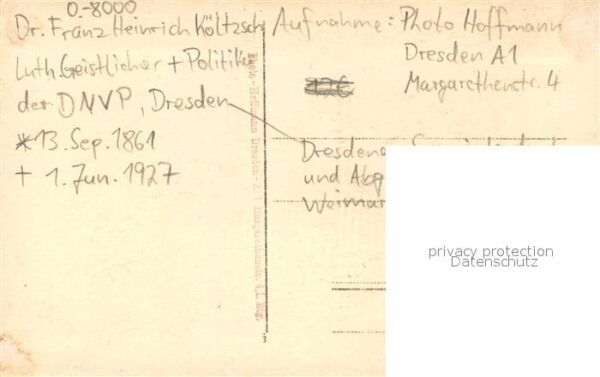 O.-8000
Dr. Franz Heinrich Költzsch
Luth Geistlicher + Politiker
der DNVP, Dresden
*13. Sep. 1861
+ 1. Jun. 1927
Aufnahme: Photo Hoffmann
Dresden A1
Margarethenstr. 4
12€
Dresden
und Abg
Weimar
Photo-Hoffmann Dresden-A.
privacy protection
Datenschutz